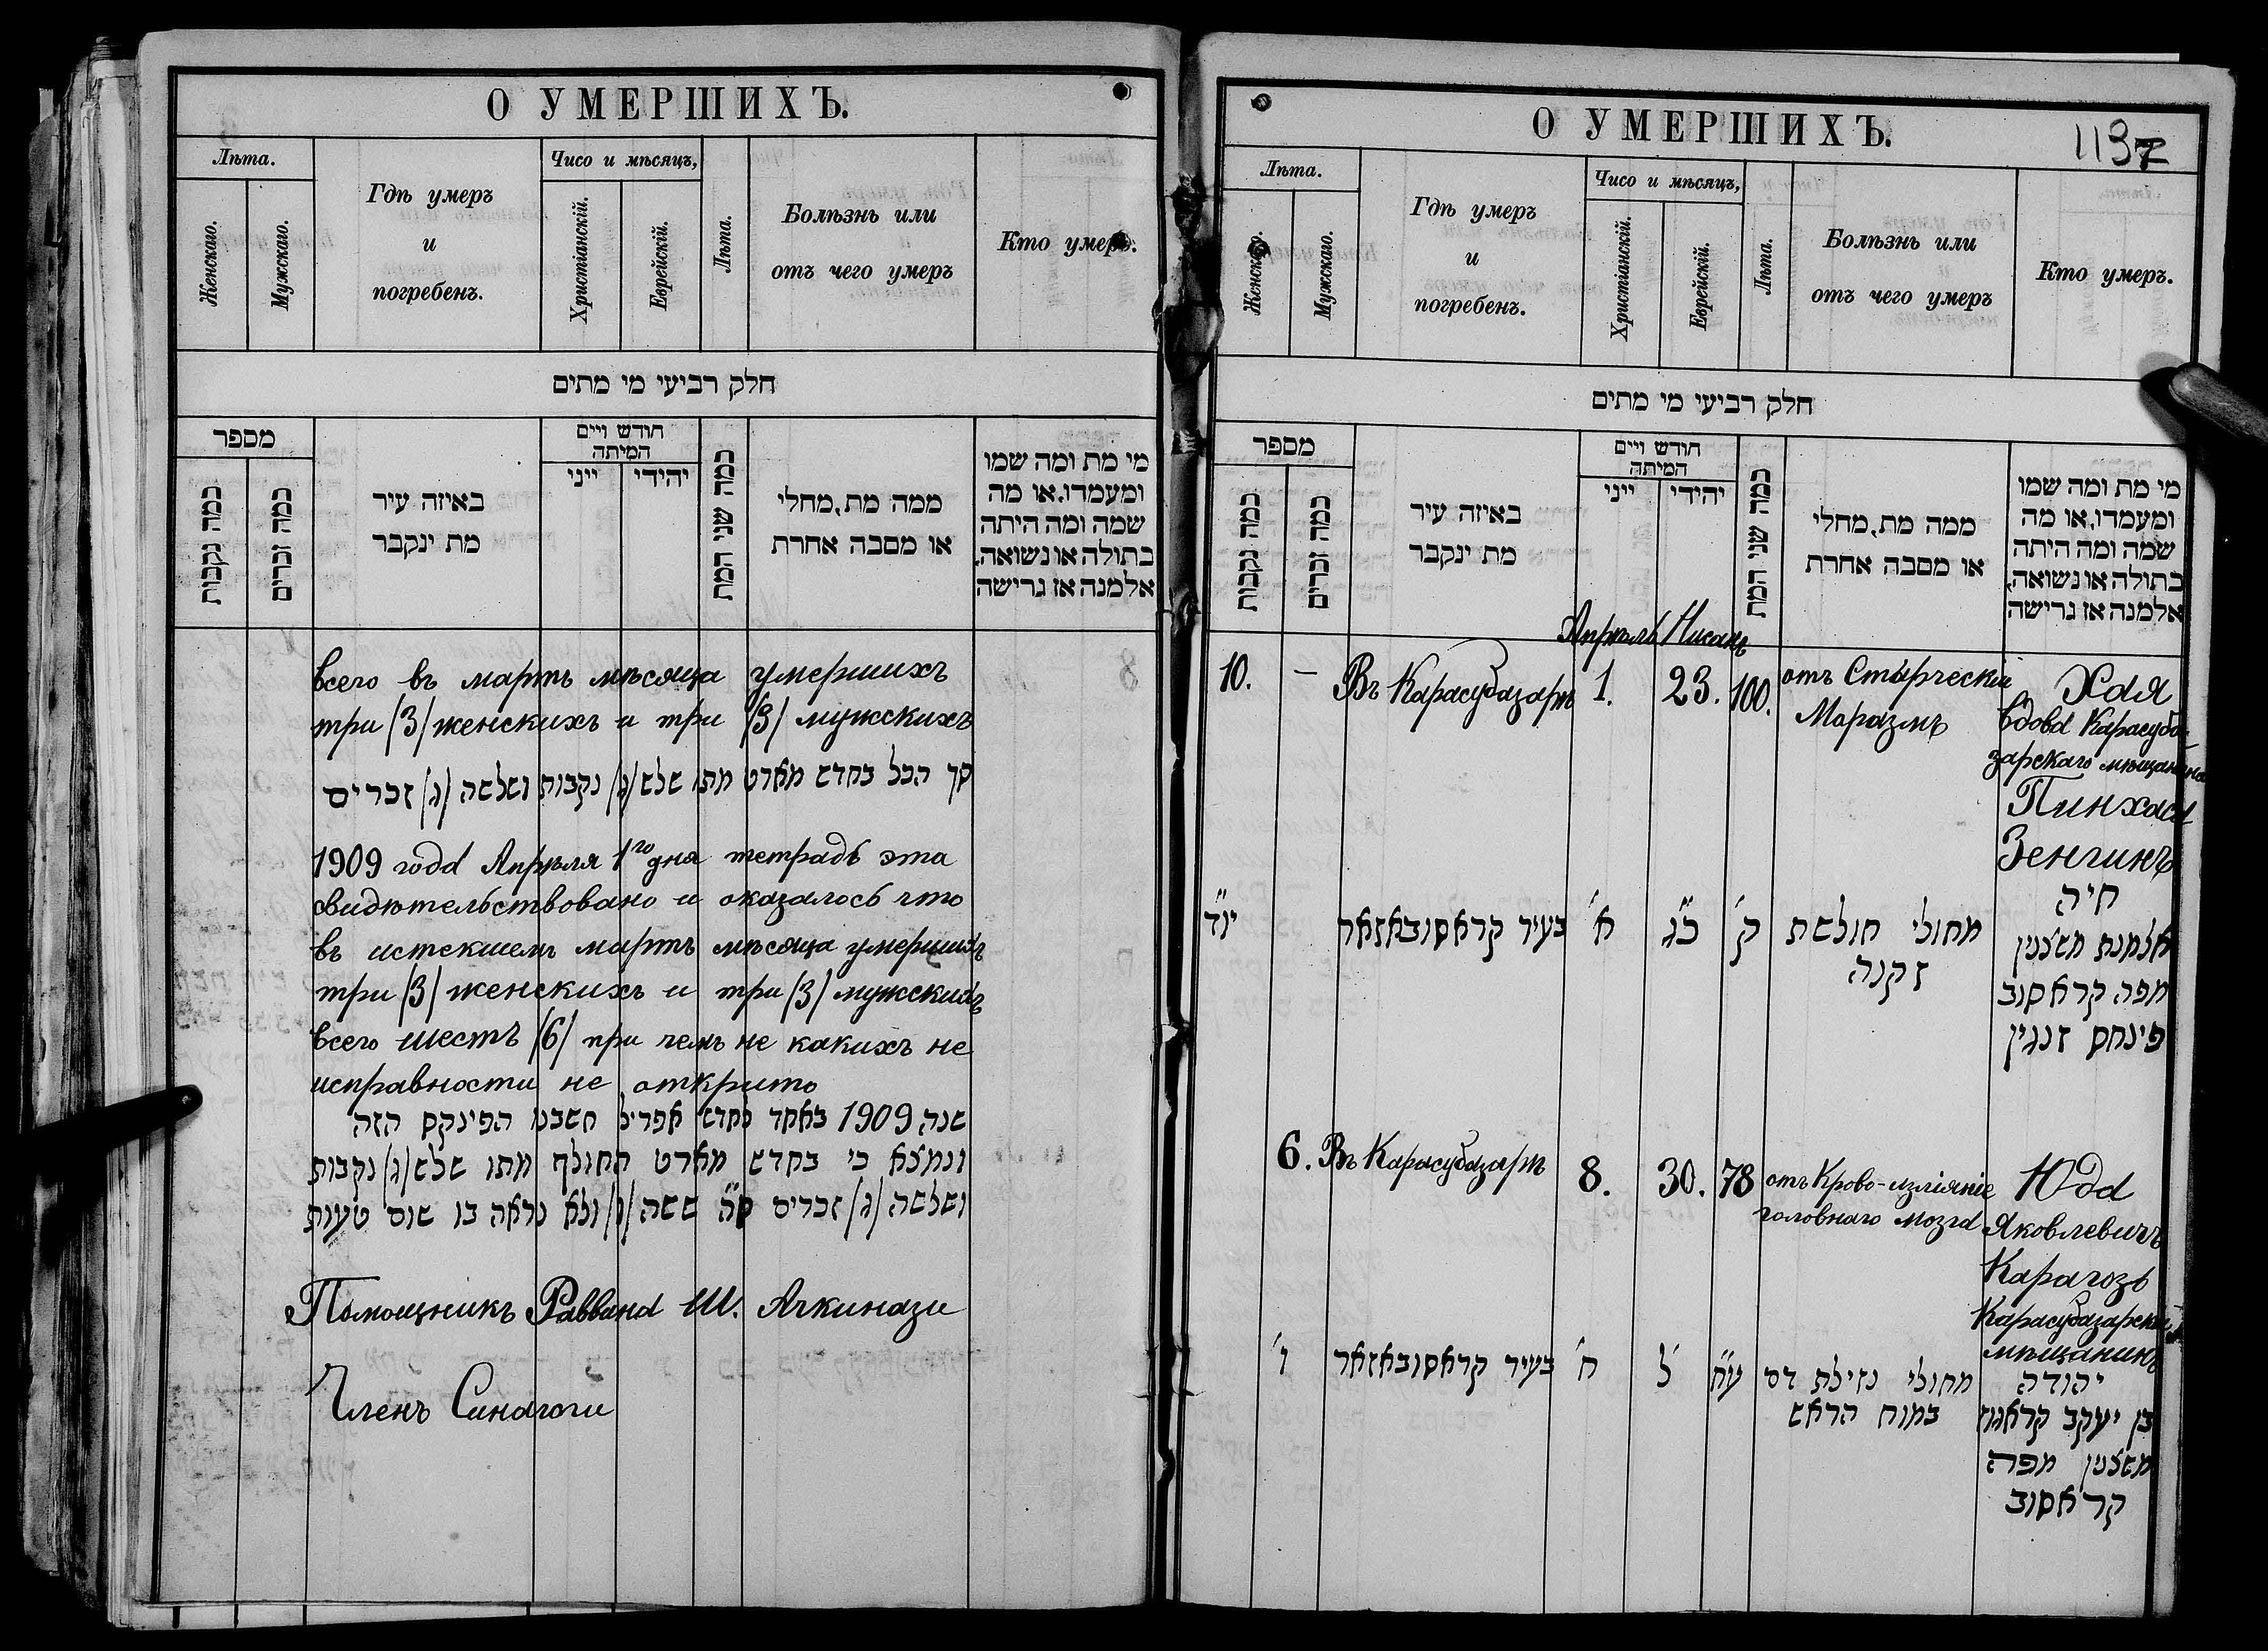 О УМЕРШИХЪ.
Лѣта.
Женскаго.
Мужскаго.
Гдѣ умеръ
и
погребенъ.
Чисо и мѣсяцъ,
Христіанскій.
Еврейскій.
Лѣта.
Болѣзнь или
отъ чего умеръ
Кто умеръ.
חלק רביעי מי מתים
מספר
כמה נקבות
כמה זכרים
באיזה עיר
מת ינקבר
חודש ויים
המיתה
ייני
יהידי
כמה שני המת
ממה מת, מחלי
או מסבה אחרת
מי מת ומה שמו
ומעמדו, או מה
שמה ומה היתה
בתולה או נשואה,
אלמנה אז גרישה
всего въ мартъ мѣсяца умершихъ
три /3/ женскихъ и три /3/ мужскихъ
סך הכל בחדש מארט מתו שלש /ג/ נקבות ושלשה /ג/ זכרים
1909 года Апрѣля 1го дня тетрадь эта
свидѣтельствовано и оказалось что
въ истекшемъ мартъ мѣсяца умершихъ
три /3/ женскихъ и три /3/ мужскихъ
всего шестъ /6/ при чемъ не какихъ не
исправности не открито
שנה 1909 באחד בחדש אפריל חשבנו הפינקס הזה
ונמצא כי בחדש מארט החולף מתו שלש /ג/ נקבות
ושלשה /ג/ זכרים ס״ה ששה /ו/ ולא נראה בו שום טעות
Помощникъ Раввина Ш. Ачкинази
Членъ Синагоги
О УМЕРШИХЪ.
1137
Лѣта.
Женскаго.
Мужскаго.
Гдѣ умеръ
и
погребенъ.
Чисо и мѣсяцъ,
Христіанскій.
Еврейскій.
Лѣта.
Болѣзнь или
отъ чего умеръ
Кто умеръ.
חלק רביעי מי מתים
מספר
כמה נקבות
כמה זכרים
באיזה עיר
מת ינקבר
חודש ויים
המיתה
ייני
יהידי
כמה שני המת
ממה מת, מחלי
או מסבה אחרת
מי מת ומה שמו
ומעמדו, או מה
שמה ומה היתה
בתולה או נשואה,
אלמנה אז גרישה
Апрѣль Нисанъ
10. — Въ Карасубазарѣ 1. 23. 100.
отъ Стырческій
Маразмъ
Хая
вдова Карасуба-
зарскаго мѣщанина
Пинхаса
Зенгинъ
יו״ד בעיר קראסובאזאר א׳ כ״ג ק׳
מחולי חולשת
זקנה
חיה
אלמנת משצנין
מפה קראסוב
פינחס זנגין
6. Въ Карасубазарѣ 8. 30. 78
отъ Крово-изліяніе
головнаго мозга
Юда
Яковлевичъ
Карагозъ
Карасубазарскій
мѣщанинъ
ו׳ בעיר קראסובאזאר ח׳ ל׳ ע״ח
מחולי נזילת דם
במוח הראש
יהודה
בן יעקב קראגוז
משצנין מפה
קראסוב